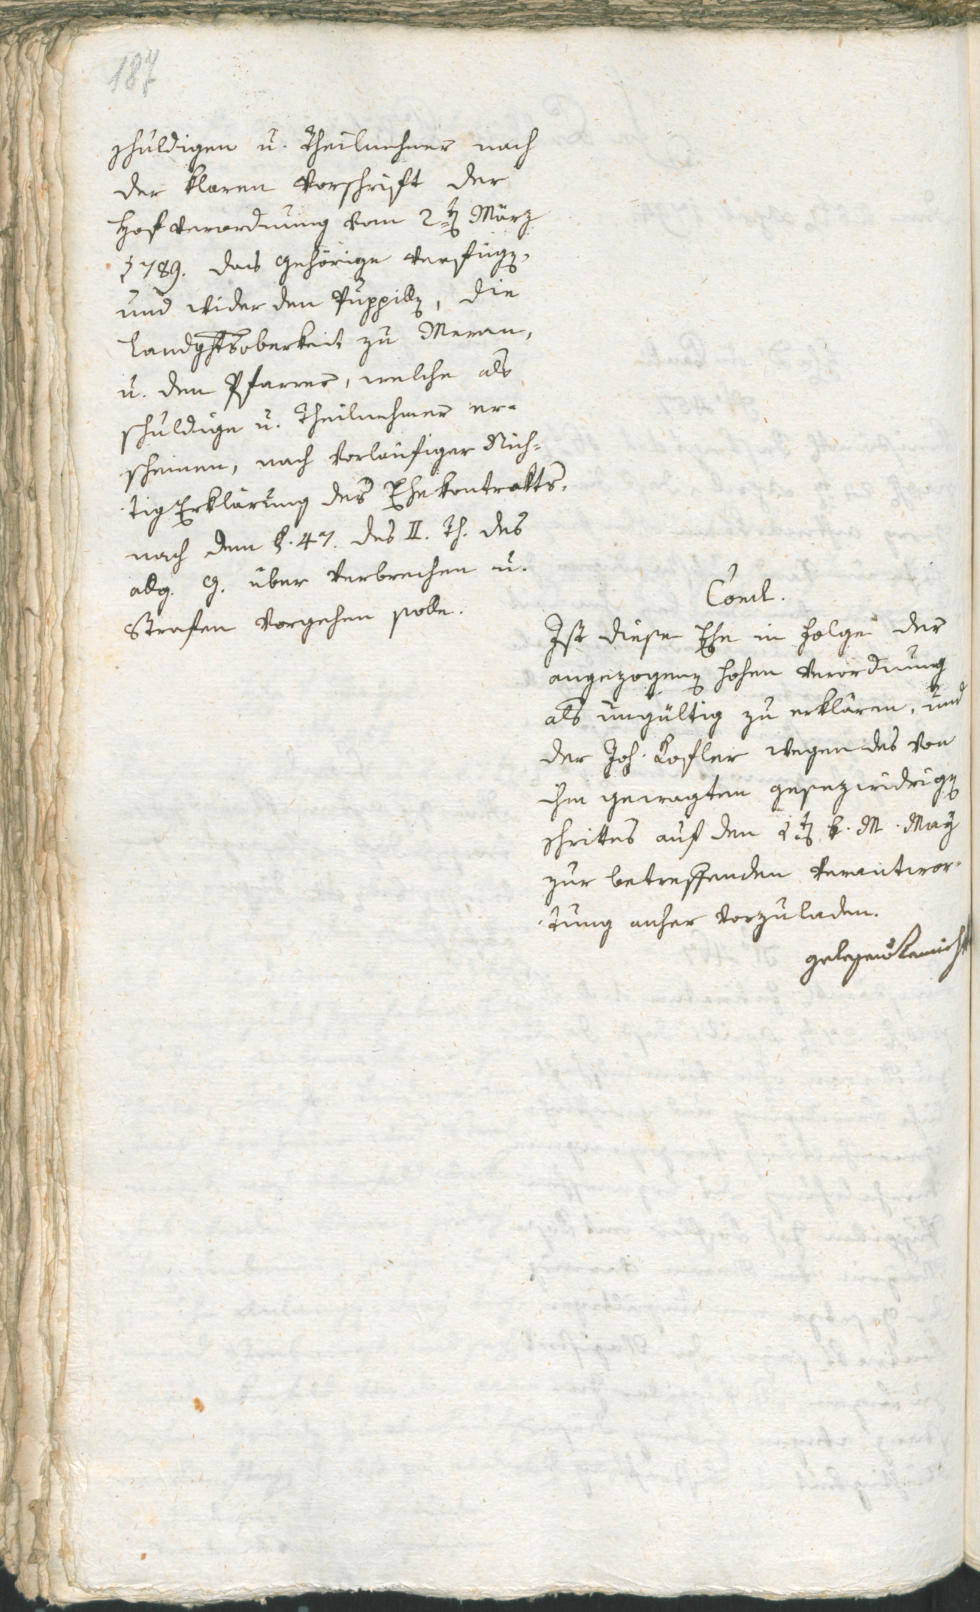 187
schuldigen u. Theilnehmer nach
der klaren Vorschrift der
Hofverordnung vom 2ten März
1789. das gehörige verfügen,
und wider den Puppillen, die
Landghtsoberkeit zu Meran,
u. den Pfarrer, welche als
schuldige u. Theilnehmer er-
scheinen, nach vorläufiger Nich-
tig Erklärung des Ehekontrakts,
nach dem §. 47. des II. Th. des
allg. G. über Verbrechen u.
Strafen vorgehen solle.
Concl.
Ist diese Ehe in Folge der
angezogenen hohen Verordnung
als ungültig zu erklären, und
der Joh. Kofler wegen des von
ihm gewagten gesezwidrigen
Schrittes auf den k. M. May
zur betreffenden Verantwor-
tung anher vorzuladen.